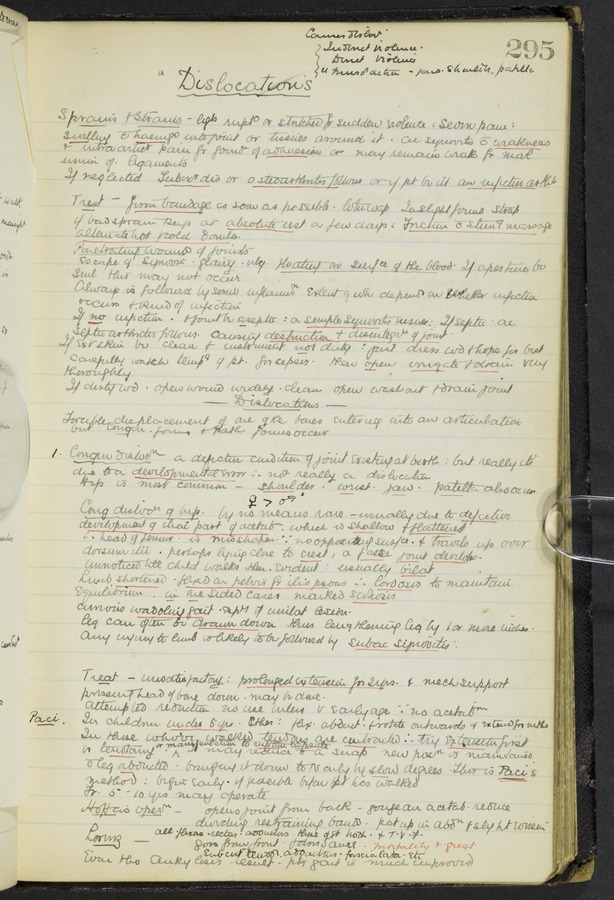 Causes Disloc.
Indirect violence.
Direct violence
295
"Dislocations
Sprains & Strains - ligts rupt or stretched fr sudden violence: severe pain:
swelling c haemge into joint or tissues around it. ac synovitis c weakness
& intra artict pain fr formn of adhesions or may remain weak fr mal
union of ligaments
If neglected Tuberc dis or osteoarthritis follows or if pt be ill an infective arth
Treat - firm bandage as soon as possible. In slight forms strap
if bad sprain keep at absolute rest a few days: friction c & massage
alternate hot & cold
Penetrating wounds of joints
Escape of Synovia - oily floating on surface of the blood. If aperture be
small this may not occur
Always is followed by some inflamn Extent of wh depends on whether infection
occurs & kind of infection
If no infection & is aseptic: a simple synovitis ensues: If septic ac
septic arthritis follows causing destruction & disintegrn of joint
If skin be clean & instrument not dirty: just dress wd & hope for best
carefully watch tempr of pt. for sepsis. then open irrigate & drain very
thoroughly
If dirty wd. open wound widely. clean open wash out & drain joint
- Dislocations -
Forcible displacement of one of the bones entering into an articulation
but Congen. forms & Path. forms occur
1. Congen Dislocn a defective condition of joint existing at birth: but really it's
due to a developmental error ∴ not really a dislocation
Hip is most common - shoulder. wrist. jaw. patella also occur
♀ > ♂
Cong dislocn of hip. by no means rare - usually due to defective
development of that part of acetabm which is shallow & flattened
∴ head of femur is misshapen ∵ no opposing surface & travels up over
dorsum ilii. perhaps lying close to crest, a false joint develops.
unnoticed till child walks then evident: usually bilat
Limb shortened. fixed on pelvis fr ilio psoas ∴ lordosis to maintain
Equilibrium. in one sided cases marked scoliosis
curious waddling gait.
leg can often be drawn down thus lengthening leg by 1 or more inches.
Any injury to limb is likely to be followed by subac synovitis.
Treat - unsatisfactory: prolonged extension for 2 yrs. & mech support
pressing head of bone down. may be done.
attempted reduction no use unless v early age ∵ no acetabm
Paci. In children under 5 yrs. Ether: flex. abduct. & rotate outwards & extend for
In those who've walked tendons are contracted ∴ try extension first
or tenotomy or manipulation to rupture capsule may reduce c a snap new posn is maintained
c leg abducted. bringing it down to only by slow degrees. This is Paci's
method: begin early. if possible before pt has walked
Fr. 5 - 10 yrs may operate
Hoffa's opern - opens joint from back - gouge an acetab. reduce
dividing restraining bands. put up in abdn & slight
Lorenz -
goes from front & does same. mortality v great
Subcut tenotn adductors. fascia lata. etc
Even tho ankylosis result. pts gait is much improved